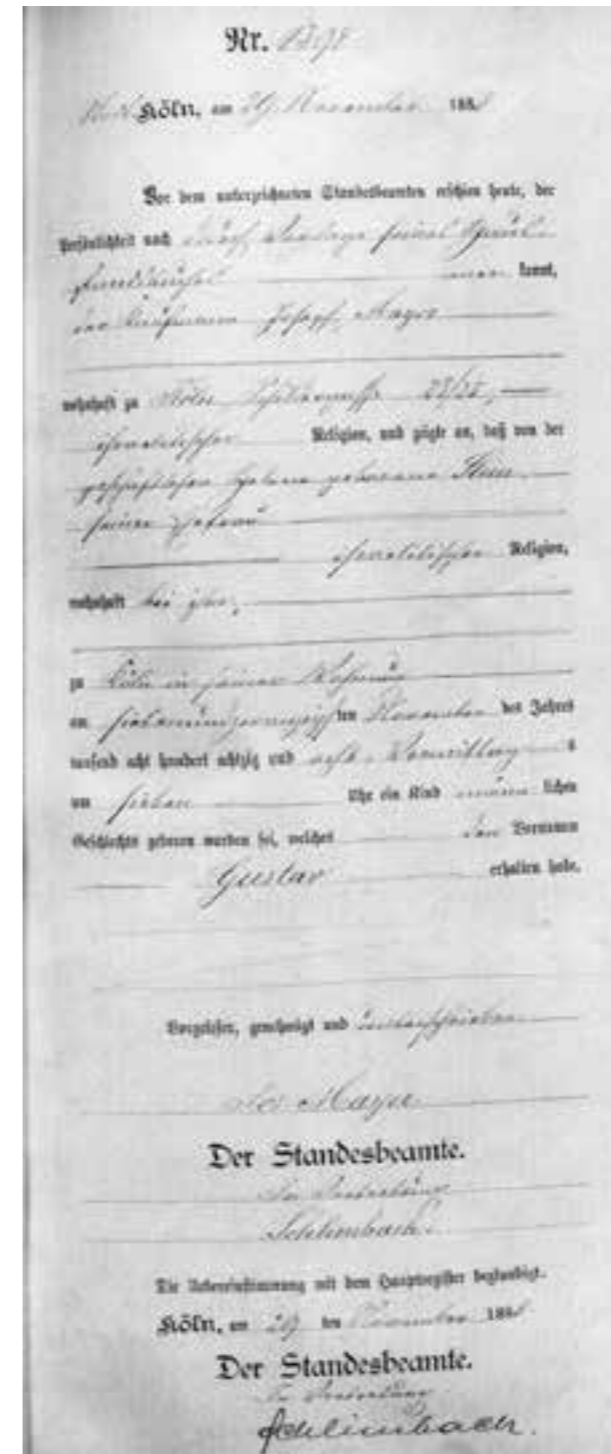 Nr.
Köln, am 29 November 1888
Vor dem unterzeichneten Standesbeamten erschien heute, der
Persönlichkeit nach durch Vorlage seines Famili-
kannt,
der Kaufmann Joseph Mayer
wohnhaft zu Köln, Schildergasse
israelitischer Religion, und zeigte an, daß von der
geschäftslosen Helene geborene
seiner Ehefrau
israelitischer Religion,
wohnhaft bei ihm,
zu Köln in seiner Wohnung
am siebenundzwanzigsten November des Jahres
tausend acht hundert achtzig und acht Vormittag s
um sieben Uhr ein Kind männ lichen
Geschlechts geboren worden sei, welches den Vornamen
Gustav erhalten habe.
Vorgelesen, genehmigt und unterschrieben
Jos Mayer
Der Standesbeamte.
In Vertretung
Schlimbach.
Die Uebereinstimmung mit dem Hauptregister beglaubigt.
Köln, am 29 ten November 1888
Der Standesbeamte.
In Vertretung
Schlimbach.